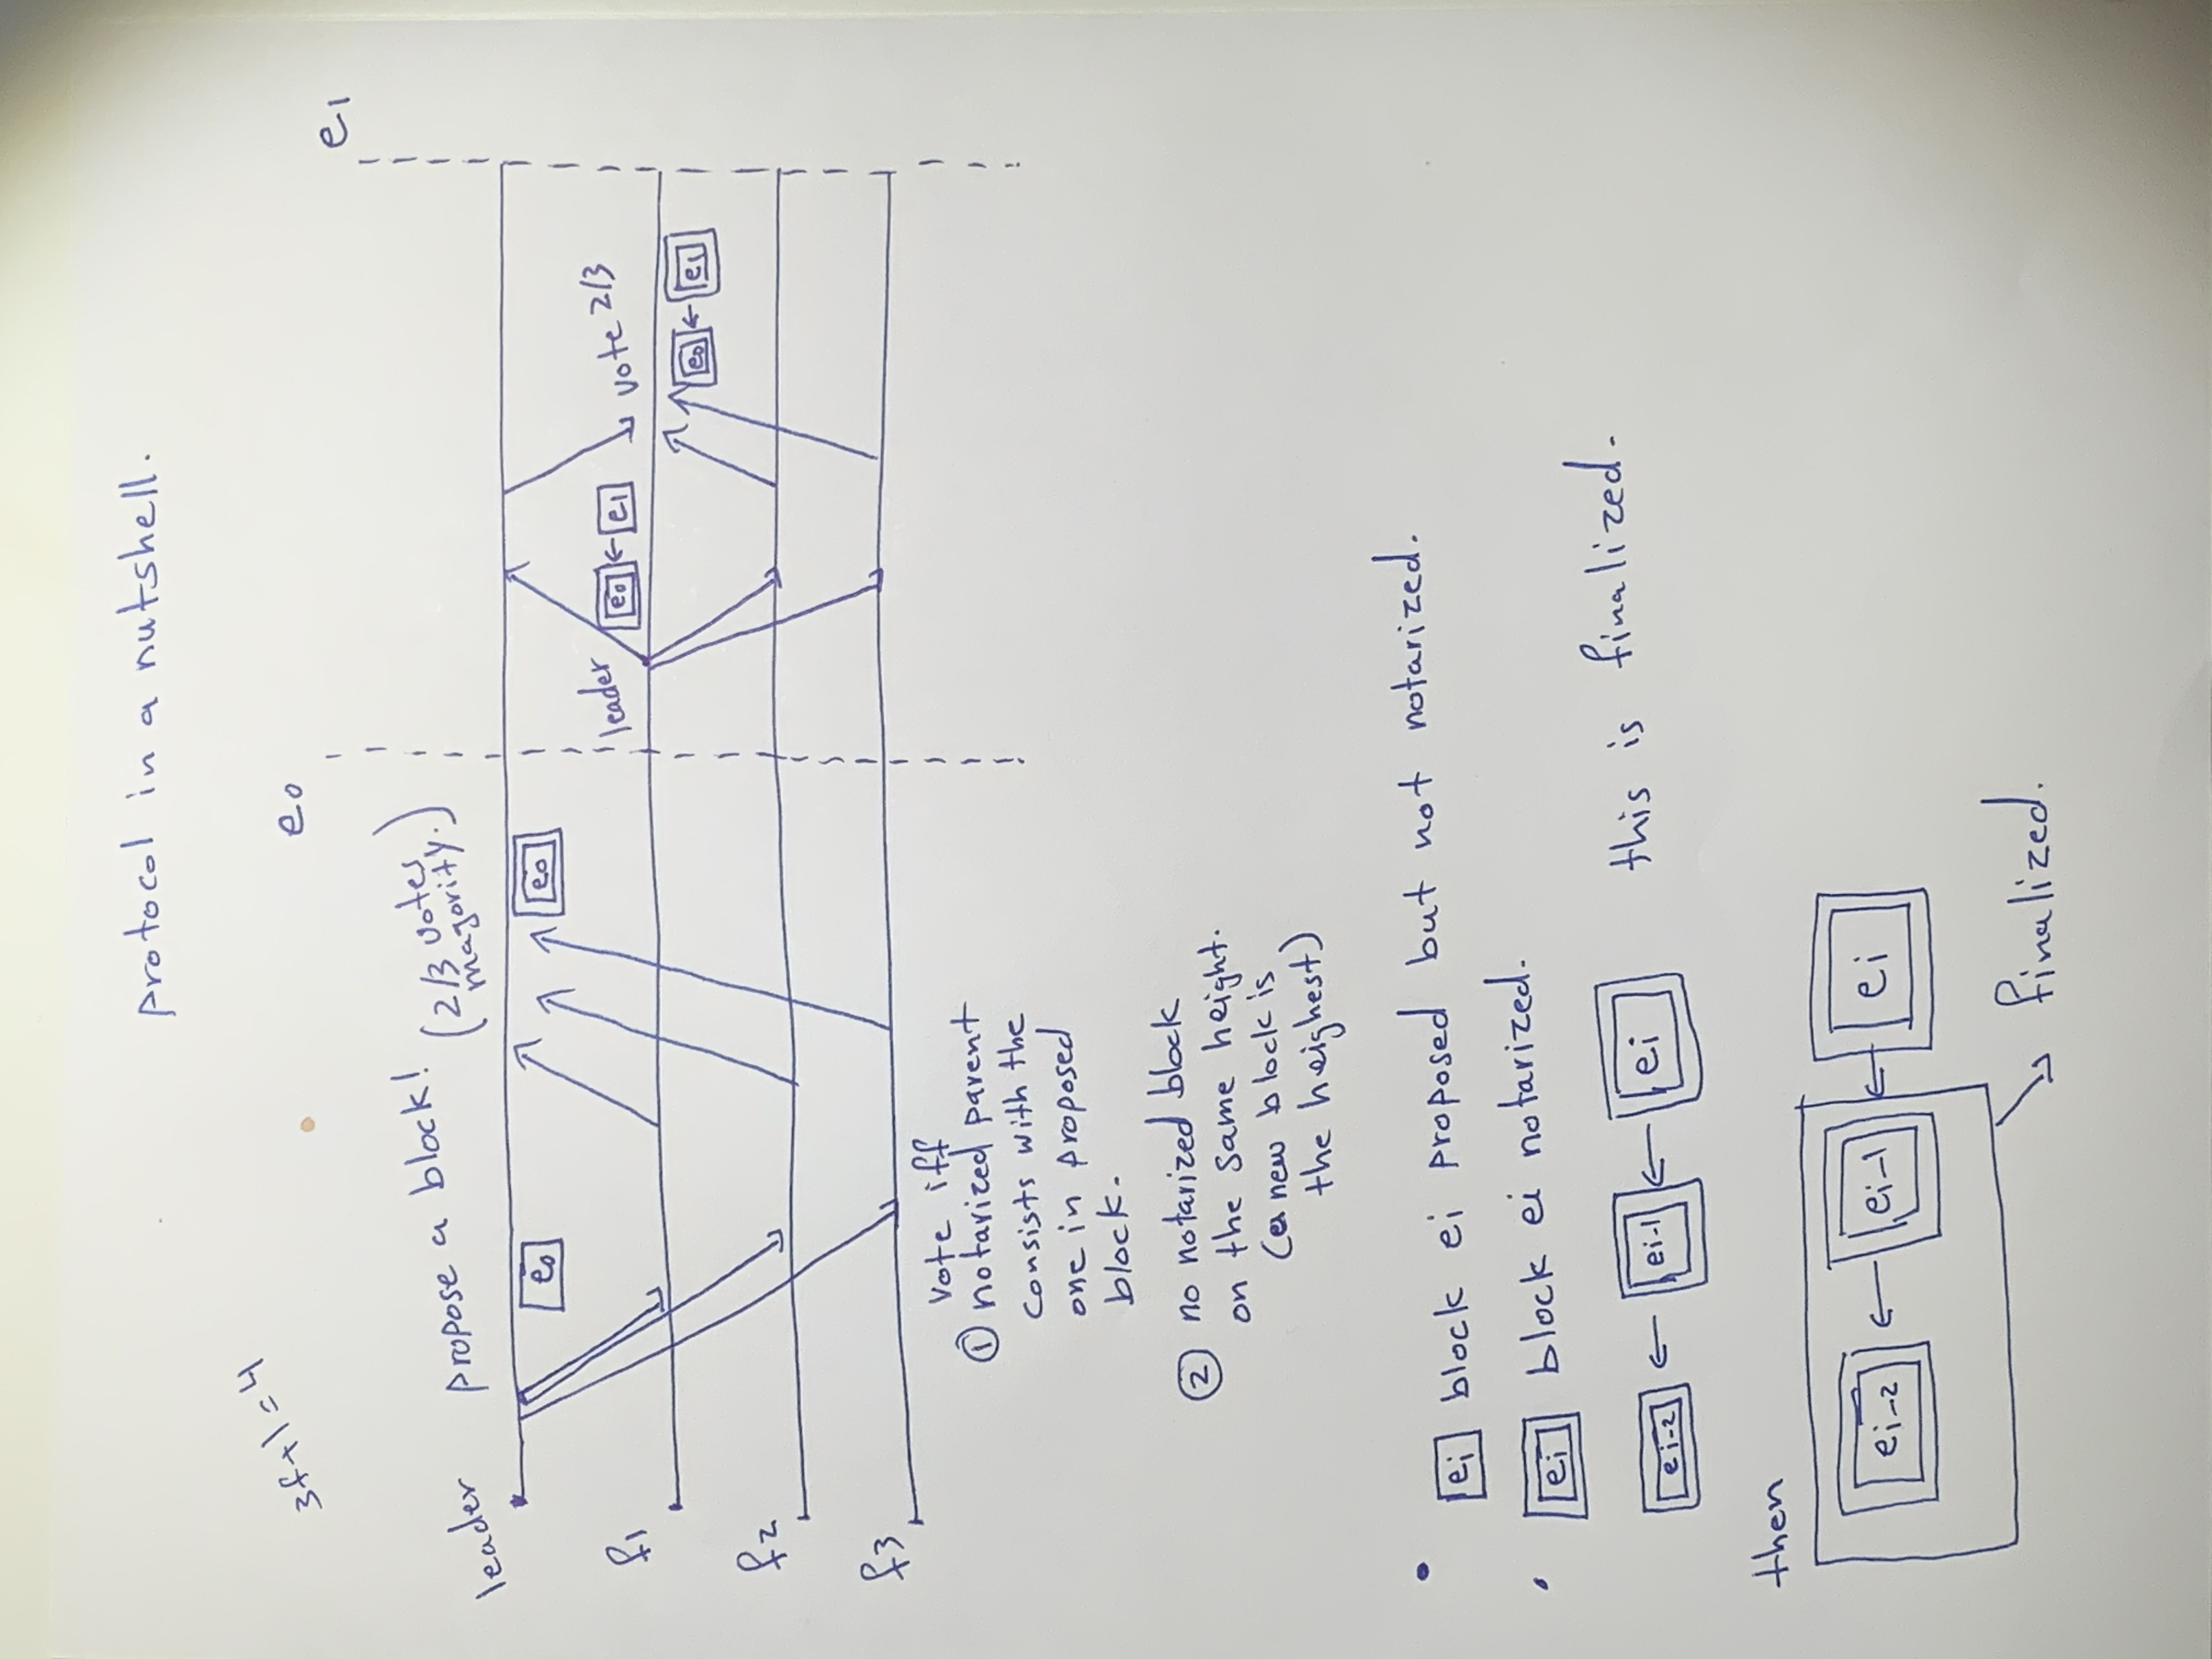 protocol in a nutshell.
3f+1=4
e0
e1
leader propose a block! (2/3 votes
magority.)
e0
e0
f1
leader
e0 ← e1
vote 2/3
e0 ← e1
f2
f3
Vote iff
① notarized parent
consists with the
one in proposed
block.
② no notarized block
on the same height.
(a new block is
the heighest)
• ei block ei proposed but not notarized.
• ei block ei notarized.
ei-2 ← ei-1 ← ei this is finalized.
then
ei-2 ← ei-1 ← ei
finalized.